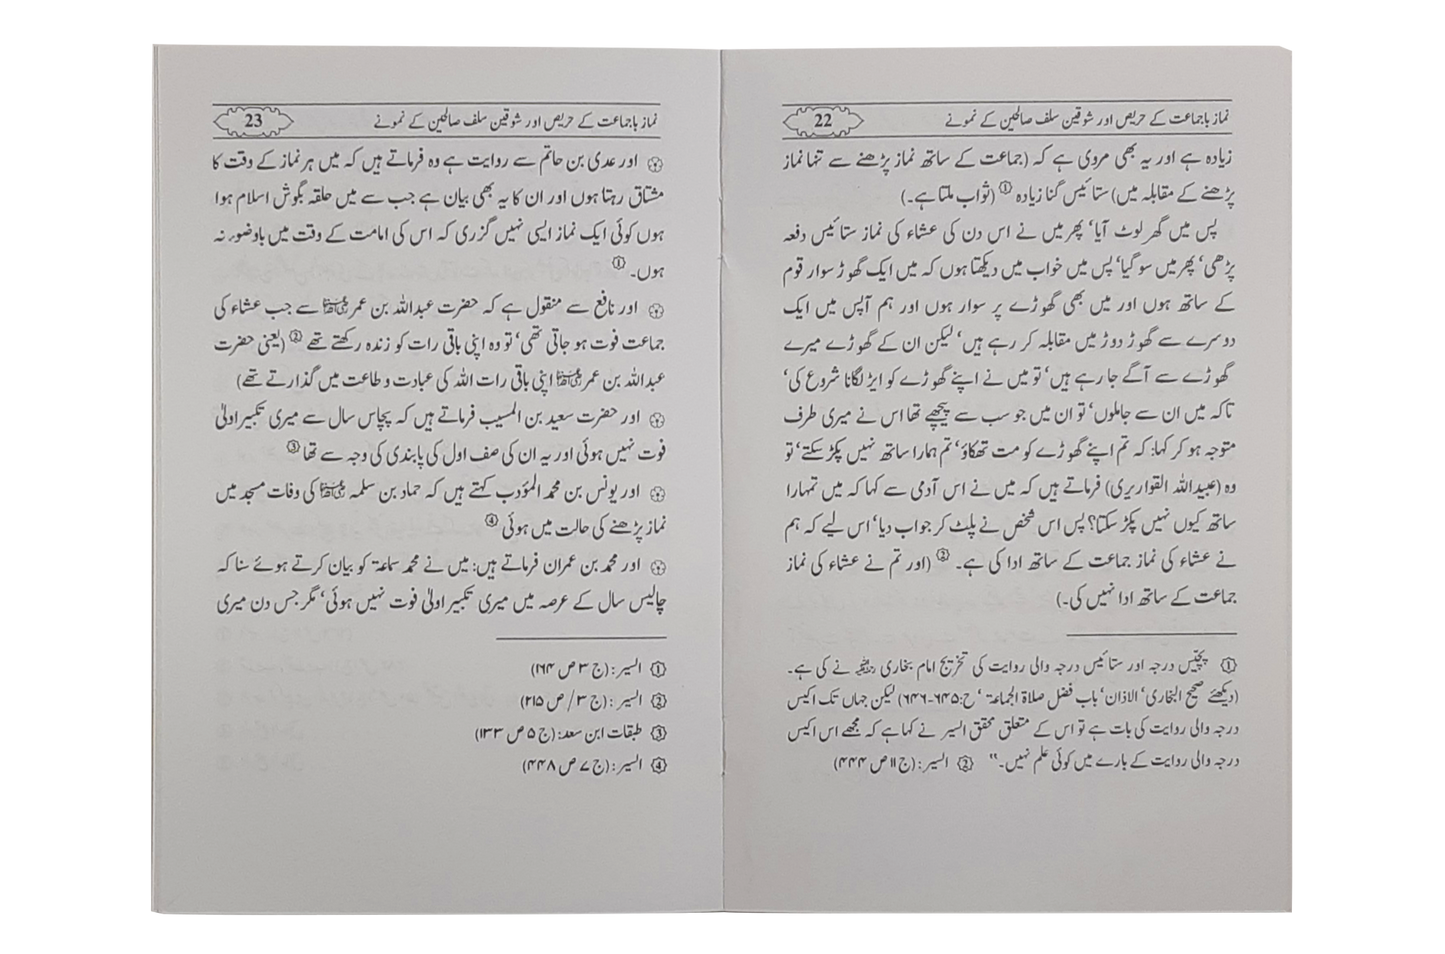 نماز باجماعت کے حریص اور شوقین سلف صالحین کے نمونے 22
زیادہ ہے اور یہ بھی مروی ہے کہ (جماعت کے ساتھ نماز پڑھنے سے تنہا نماز
پڑھنے کے مقابلہ میں) ستائیس گنا زیادہ ① (ثواب ملتا ہے۔)
پس میں گھر لوٹ آیا، پھر میں نے اس دن کی عشاء کی نماز ستائیس دفعہ
پڑھی، پھر میں سو گیا، پس میں خواب میں دیکھتا ہوں کہ میں ایک گھوڑ سوار قوم
کے ساتھ ہوں اور میں بھی گھوڑے پر سوار ہوں اور ہم آپس میں ایک
دوسرے سے گھوڑ دوڑ میں مقابلہ کر رہے ہیں، لیکن ان کے گھوڑے میرے
گھوڑے سے آگے جا رہے ہیں، تو میں نے اپنے گھوڑے کو ایڑ لگانا شروع کی،
تاکہ میں ان سے جاملوں، تو ان میں جو سب سے پیچھے تھا اس نے میری طرف
متوجہ ہو کر کہا: کہ تم اپنے گھوڑے کو مت تھکاؤ، تم ہمارا ساتھ نہیں پکڑ سکتے، تو
وہ (عبیداللہ القواریری) فرماتے ہیں کہ میں نے اس آدمی سے کہا کہ میں تمہارا
ساتھ کیوں نہیں پکڑ سکتا؟ پس اس شخص نے پلٹ کر جواب دیا، اس لیے کہ ہم
نے عشاء کی نماز جماعت کے ساتھ ادا کی ہے۔ ② (اور تم نے عشاء کی نماز
جماعت کے ساتھ ادا نہیں کی۔)
① پچیس درجہ اور ستائیس درجہ والی روایت کی تخریج امام بخاری رحمہ اللہ نے کی ہے۔
(دیکھئے صحیح البخاری، الاذان، باب فضل صلاۃ الجماعۃ، ح:۶۴۵-۶۴۶) لیکن جہاں تک اکیس
درجہ والی روایت کی بات ہے تو اس کے متعلق محقق السیر نے کہا ہے کہ مجھے اس اکیس
درجہ والی روایت کے بارے میں کوئی علم نہیں۔" ② السیر: (ج ۱۱ ص ۴۴۴)
نماز باجماعت کے حریص اور شوقین سلف صالحین کے نمونے 23
اور عدی بن حاتم سے روایت ہے وہ فرماتے ہیں کہ میں ہر نماز کے وقت کا
مشتاق رہتا ہوں اور ان کا یہ بھی بیان ہے جب سے میں حلقہ بگوش اسلام ہوا
ہوں کوئی ایک نماز ایسی نہیں گزری کہ اس کی امامت کے وقت میں باوضوء نہ
ہوں۔ ①
اور نافع سے منقول ہے کہ حضرت عبداللہ بن عمر رضی اللہ عنہما سے جب عشاء کی
جماعت فوت ہو جاتی تھی، تو وہ اپنی باقی رات کو زندہ رکھتے تھے ② (یعنی حضرت
عبداللہ بن عمر رضی اللہ عنہما اپنی باقی رات اللہ کی عبادت و طاعت میں گذارتے تھے)
اور حضرت سعید بن المسیب فرماتے ہیں کہ پچاس سال سے میری تکبیر اولیٰ
فوت نہیں ہوئی اور یہ ان کی صف اول کی پابندی کی وجہ سے تھا ③
اور یونس بن محمد المؤدب کہتے ہیں کہ حماد بن سلمہ کی وفات مسجد میں
نماز پڑھنے کی حالت میں ہوئی ④
اور محمد بن عمران فرماتے ہیں: میں نے محمد سماعۃ کو بیان کرتے ہوئے سنا کہ
چالیس سال کے عرصہ میں میری تکبیر اولیٰ فوت نہیں ہوئی، مگر جس دن میری
① السیر: (ج ۳ ص ۱۶۴)
② السیر: (ج ۳ / ص ۲۱۵)
③ طبقات ابن سعد: (ج ۵ ص ۱۳۳)
④ السیر: (ج ۷ ص ۴۴۸)